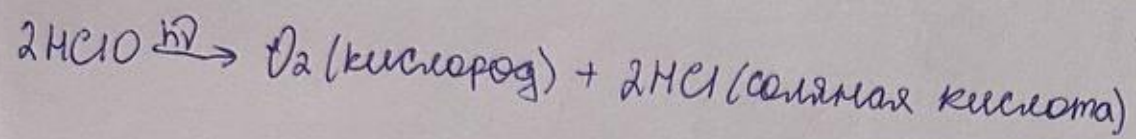 2HClO hν→ O2 (кислород) + 2HCl (соляная кислота)